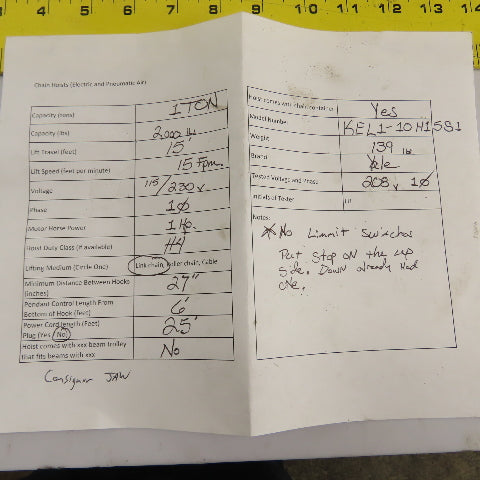 4 5 6 7 8 9 10 11 12 13 14
Chain Hoists (Electric and Pneumatic Air)
Capacity (tons) 1 TON
Capacity (lbs) 2000 lb
Lift Travel (feet) 15'
Lift Speed (feet per minute) 15 Fpm
Voltage 115/230 v
Phase 1Ø
Motor Horse Power 1 Hp
Hoist Duty Class (if available) H4
Lifting Medium (Circle One) Link chain, Roller chain, Cable
Minimum Distance Between Hooks (inches) 27"
Pendant Control Length From
Bottom of Hook (feet) 6'
Power Cord length (Feet) 25'
Plug (Yes / No)
Hoist comes with xxx beam trolley
that fits beams with xxx No
Consignor JAW
Hoist comes with chain container Yes
Model Number KEL1-10H15S1
Weight 139 lb
Brand Yale
Tested Voltage and Phase 208 v 1Ø
Initials of Tester
Notes:
No Limmit Switches
Put Stop on the up
side. Down already had
one.